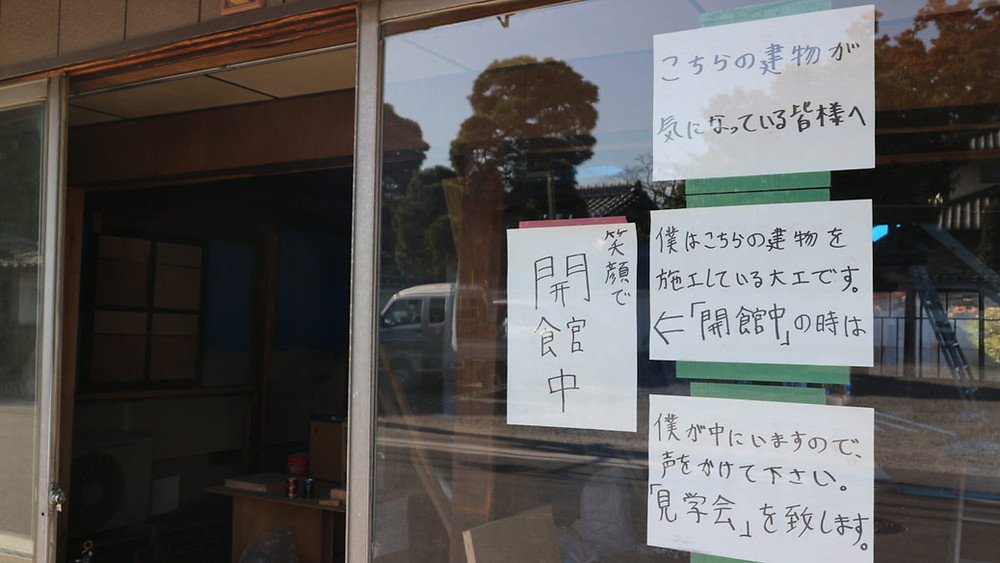 こちらの建物が
気になっている皆様へ
僕はこちらの建物を
施工している大工です。
←「開館中」の時は
僕が中にいますので、
声をかけて下さい。
「見学会」を致します。
笑顔で
開館中